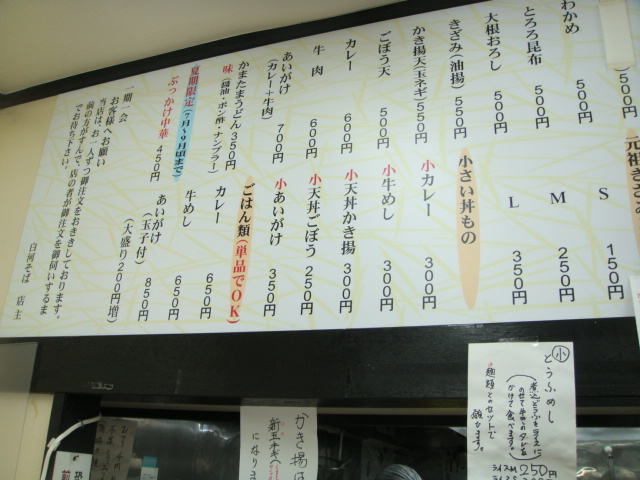 500円)
わかめ 500円
とろろ昆布 500円
大根おろし 500円
きざみ(油揚) 550円
かき揚天(玉ネギ)550円
ごぼう天 500円
カレー 600円
牛肉 600円
あいがけ 700円
(カレー+牛肉)
かまたまうどん 350円
味(醤油・ポン酢・ナンプラー)
夏期限定(7月〜9月頃まで)
ぶっかけ中華 450円
S 150円
M 250円
L 350円
小さい丼もの
小カレー 300円
小牛めし 300円
小天丼かき揚 300円
小天丼ごぼう 250円
小あいがけ 350円
ごはん類(単品でOK)
カレー 650円
牛めし 650円
あいがけ 850円
(玉子付)
(大盛り200円増)
一期一会
お客様へお願い
当店は、お一人ずつ御注文をおききしております。
前の方がすんで、店の者が御注文を御伺いするま
でお待ち下さい。
白河そば 店主
小 とうふめし
(煮込どうふをライスに
のせて牛めしのタレを
かけて食べます。)
250円
麺類とのセットで
願います。
かき揚は
新玉ネギ
になりま